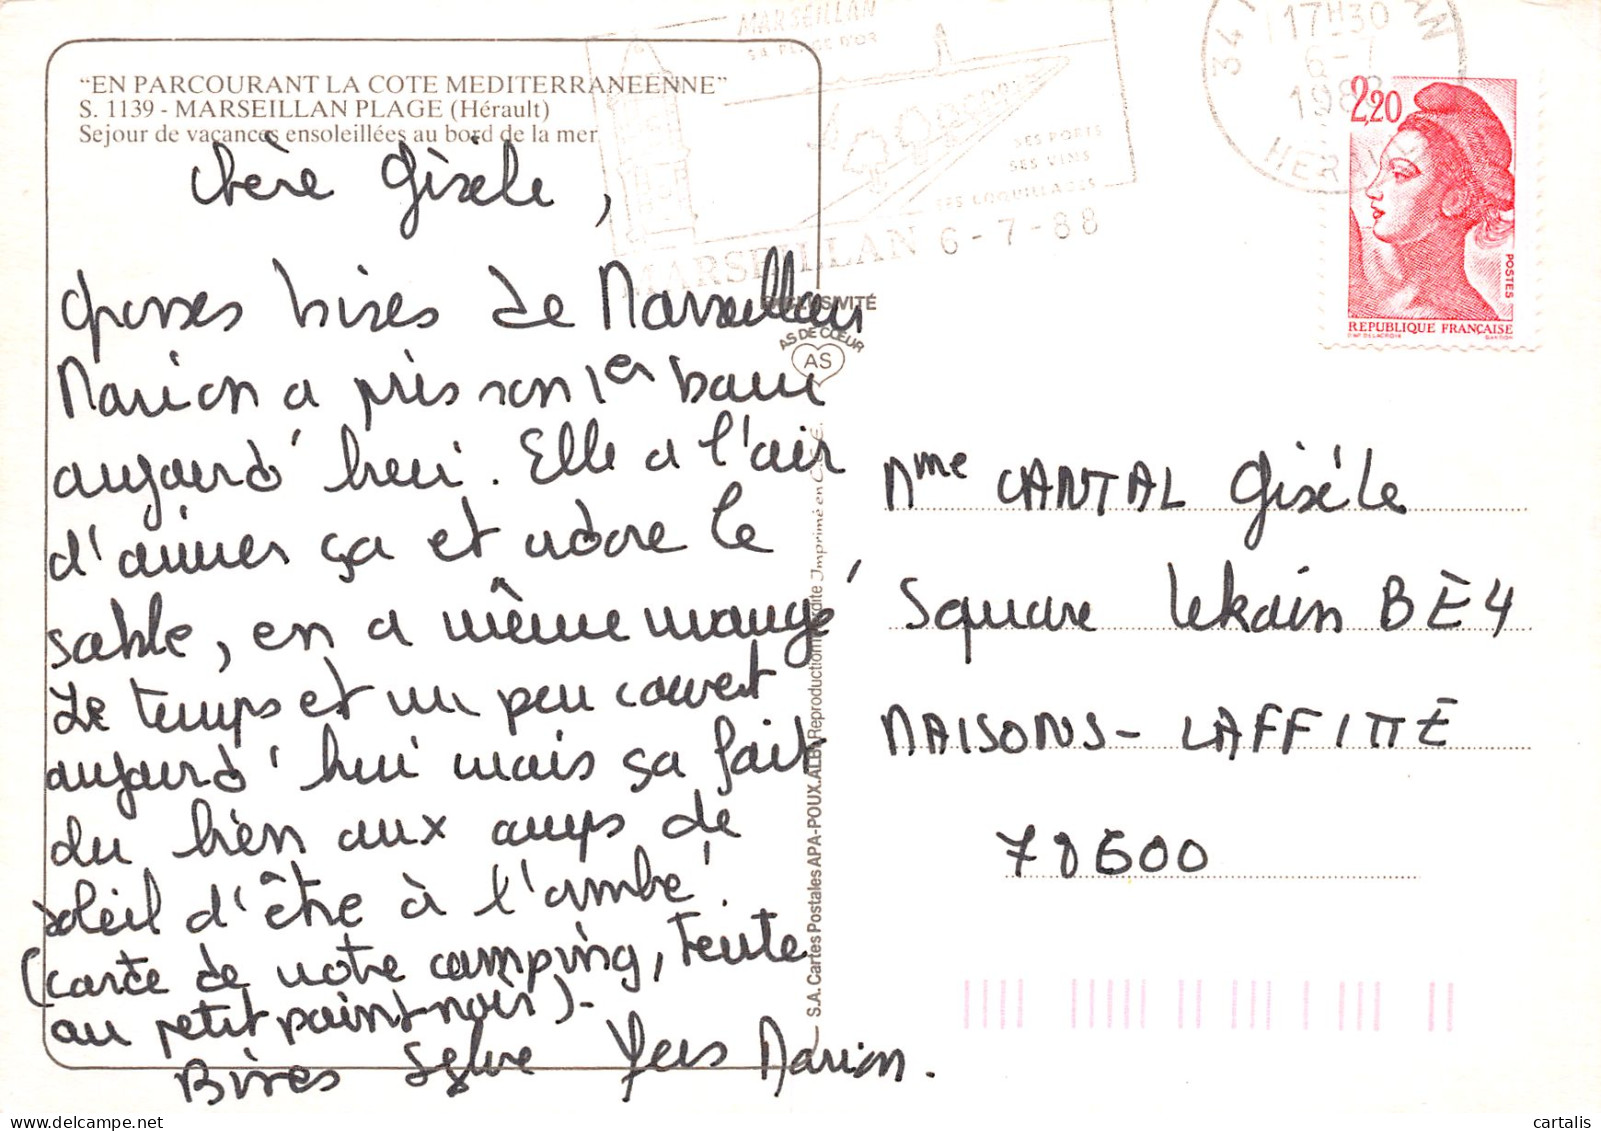 "EN PARCOURANT LA COTE MEDITERRANEENNE"
S. 1139 - MARSEILLAN PLAGE (Hérault)
Sejour de vacances ensoleillées au bord de la mer
Chère Gisèle,
Grosses bises de Marseillan
Marion a pris son 1er bain
aujourd'hui. Elle a l'air
d'aimer ça et adore le
sable, en a même mangé
Le temps et un peu couvert
aujourd'hui mais sa fait
du bien aux coups de
soleil d'être à l'ombre
(carte de notre camping, tente
au petit point noir)-
Bises Sylvie Yves Marion.
MARSEILLAN
SA PLAGE D'OR
SES PORTS
SES VINS
SES COQUILLAGES
MARSEILLAN 6-7-88
34
17H30
6-7
1988
HERAULT
2,20
POSTES
REPUBLIQUE FRANÇAISE
EXCLUSIVITÉ
AS DE CŒUR
AS
S.A. Cartes Postales APA-POUX. ALBI Reproduction interdite Imprimé en C.E.E.
Mme CANTAL Gisèle
Square Lekain BE4
MAISONS-LAFFITTE
78600
cartalis
delcampe.net